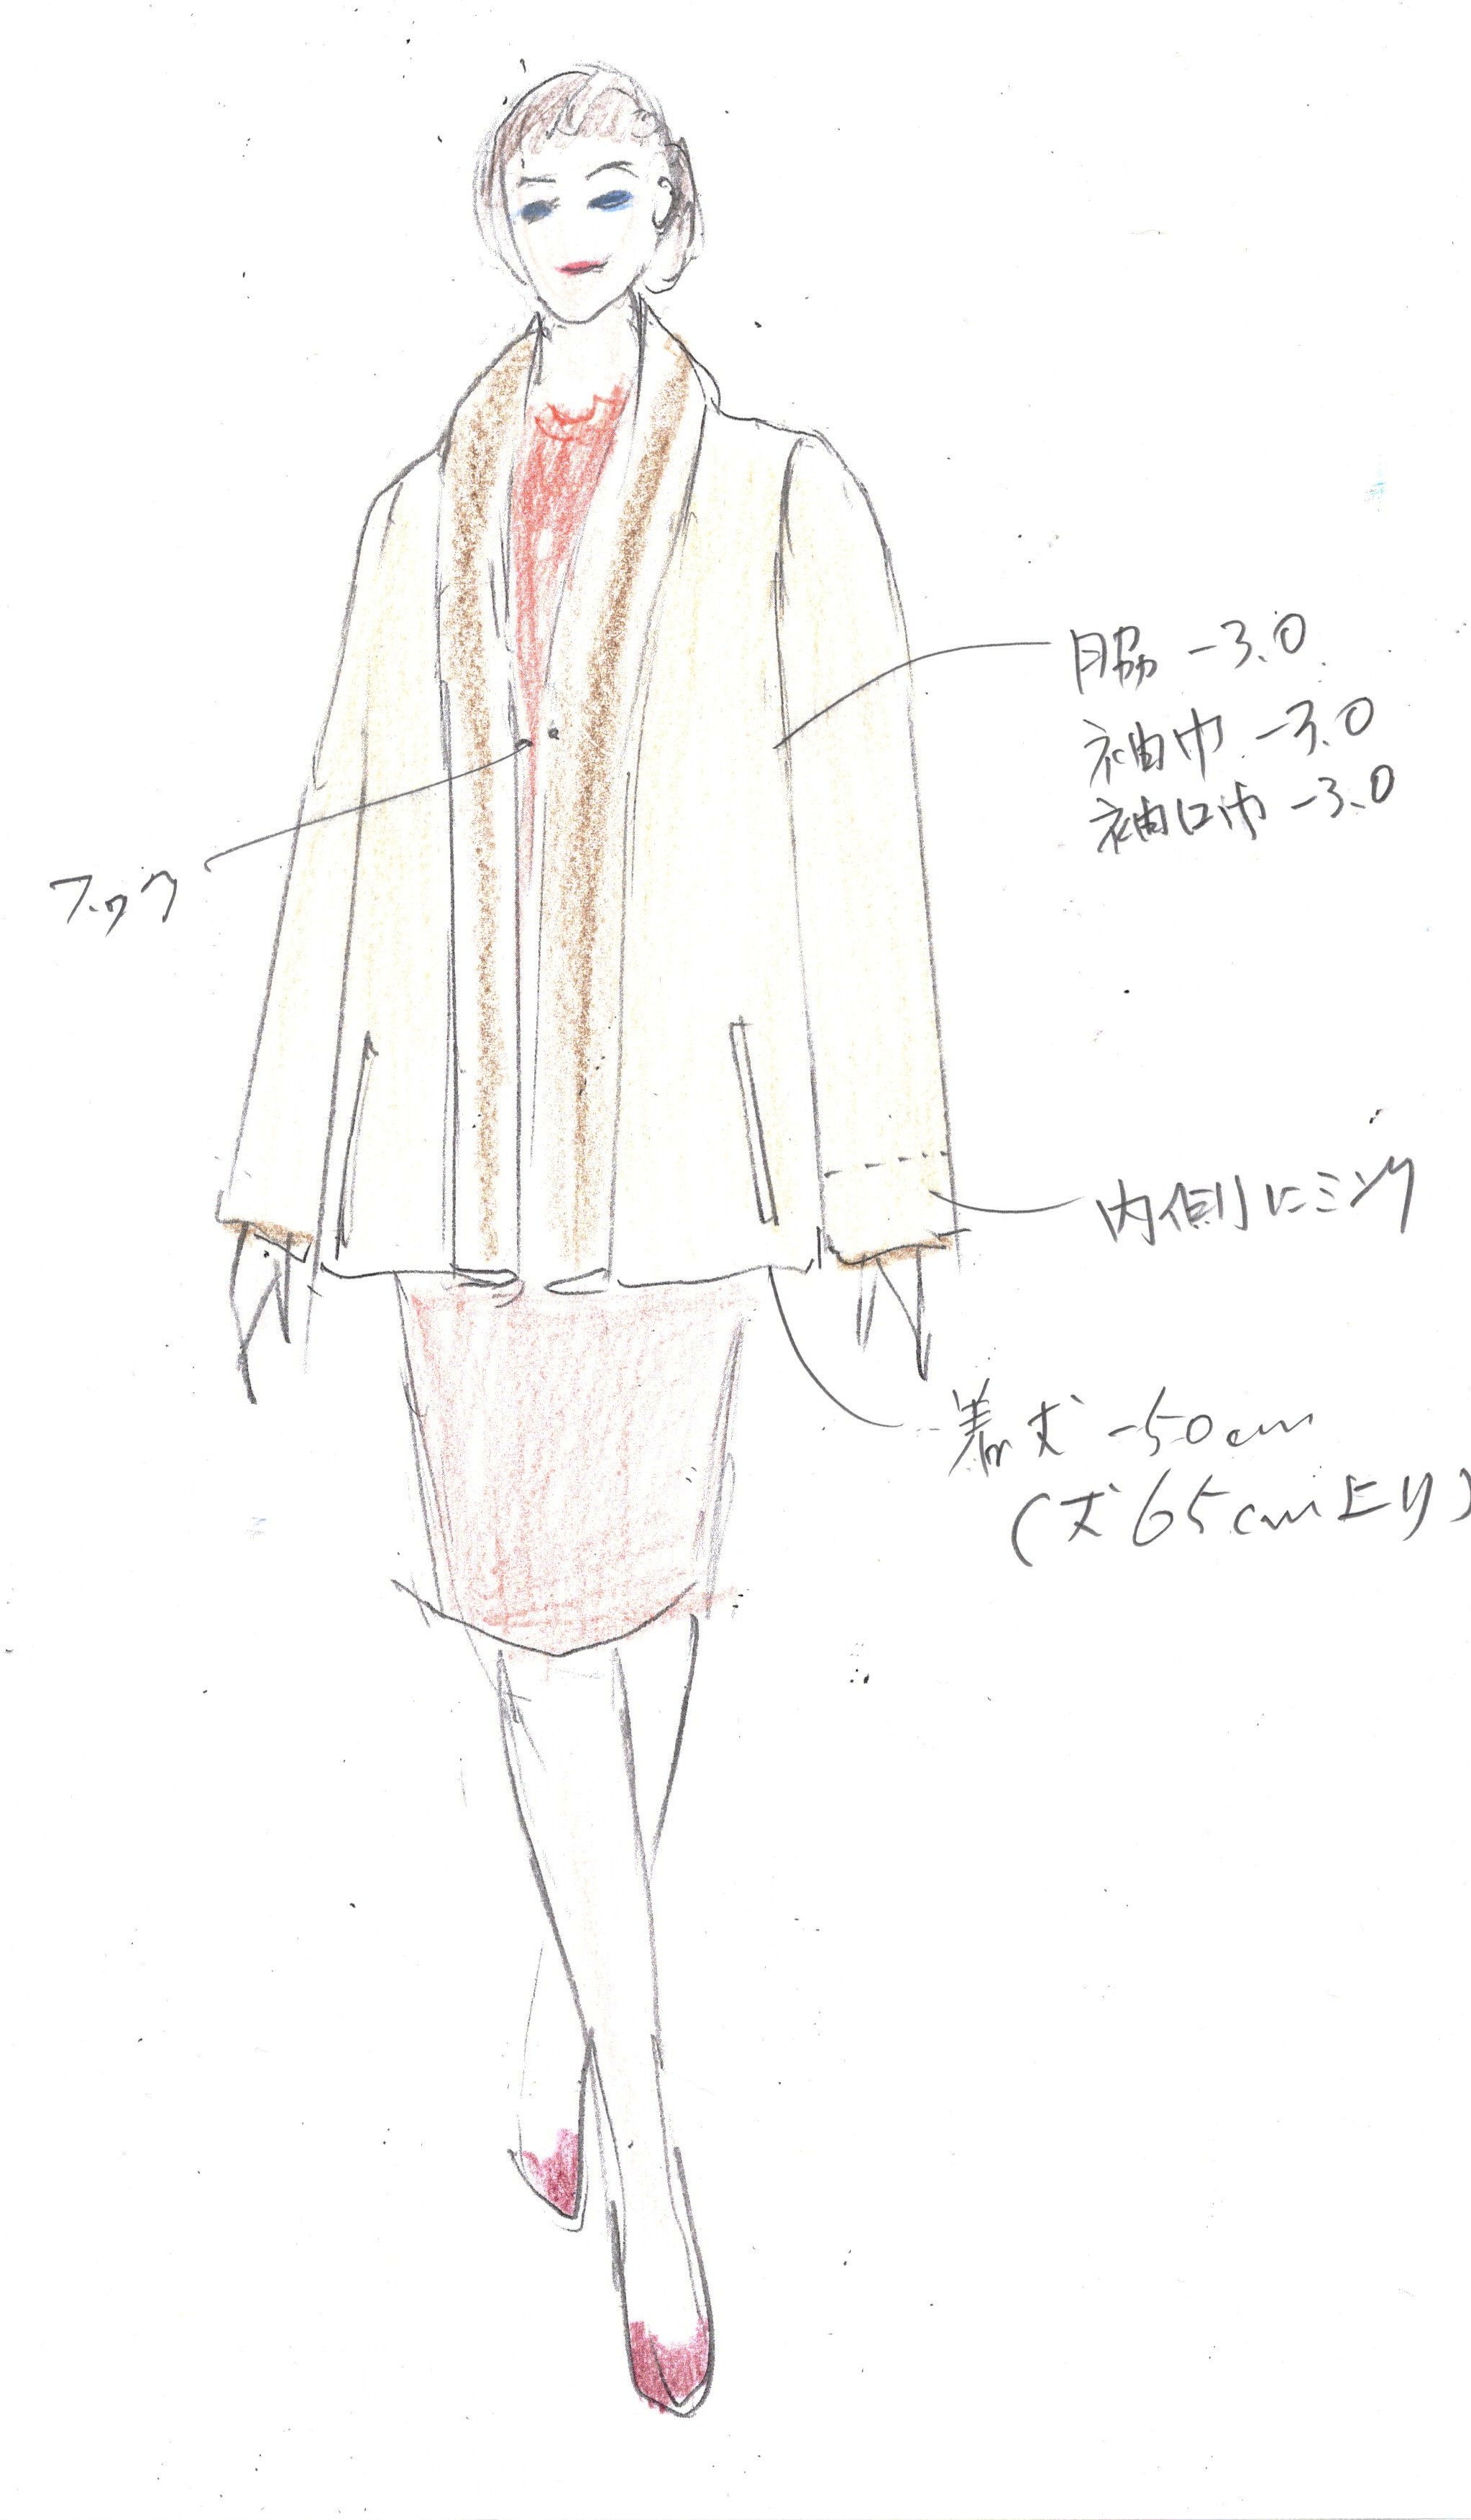 脇 -3.0
袖巾 -3.0
袖口巾 -3.0
フック
内側にミンク
着丈 -50cm
(丈65cm上り)